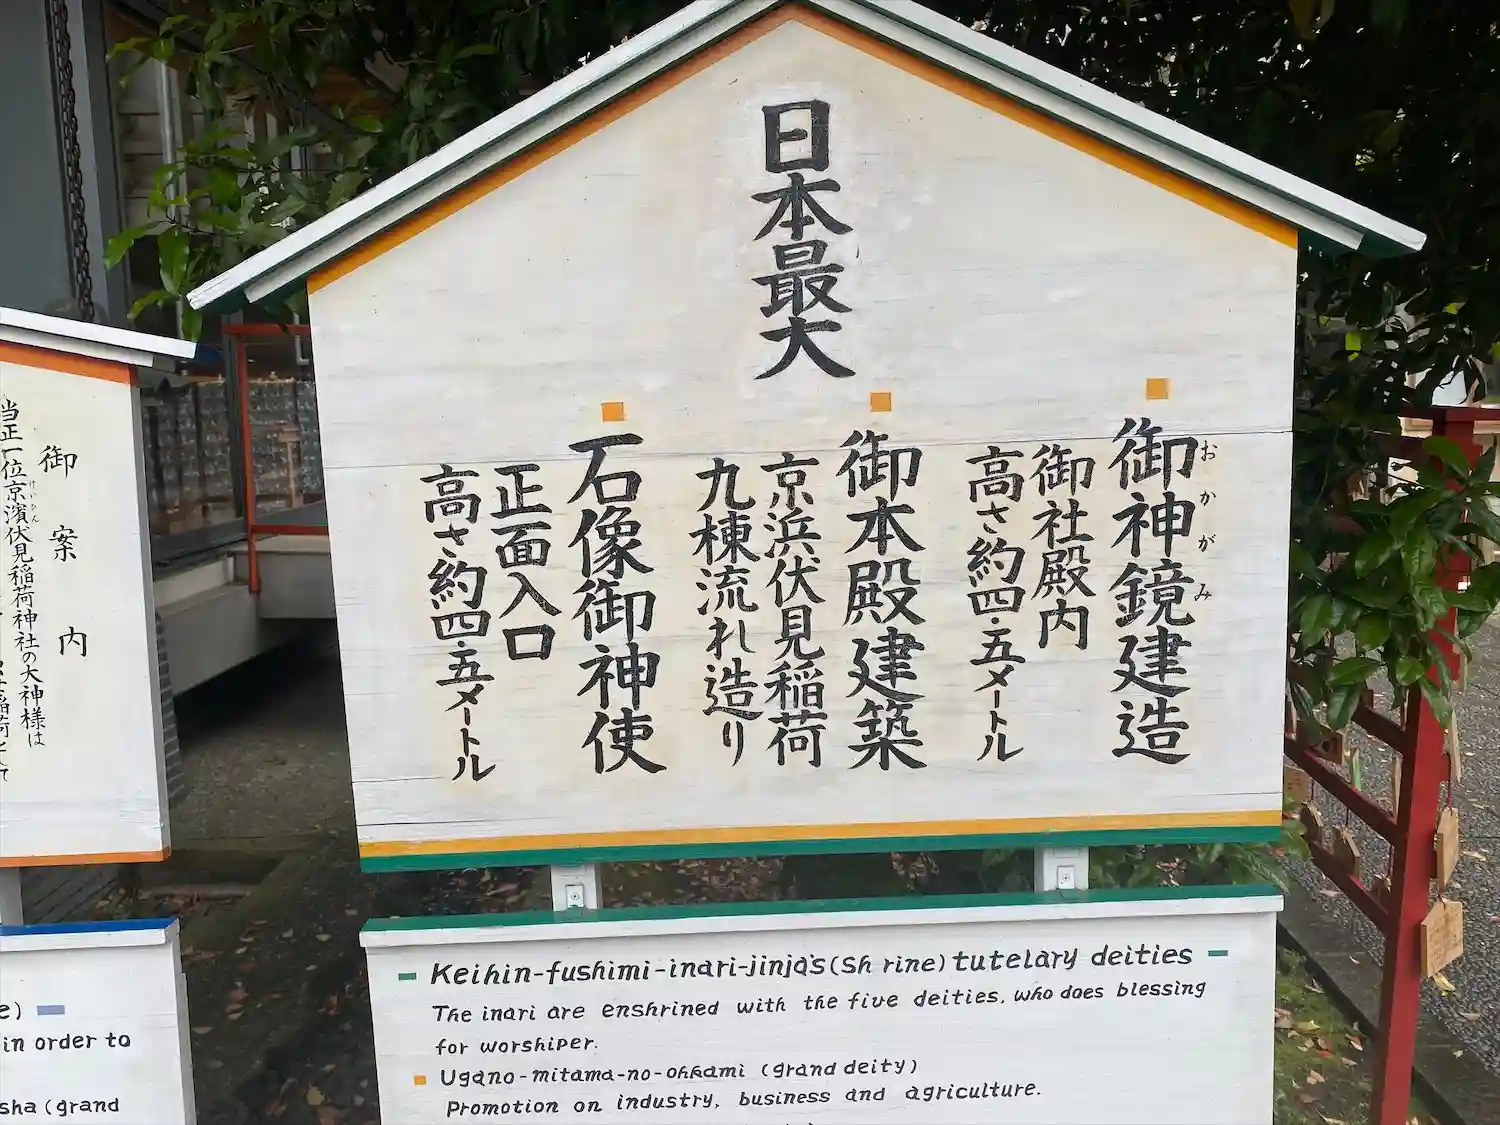 日本最大
御神鏡建造
おかがみ
御社殿内
高さ約四・五メートル
御本殿建築
京浜伏見稲荷
九棟流れ造り
石像御神使
正面入口
高さ約四・五メートル
御案内
当正一位京濱伏見稲荷神社の大神様は
けいひん
Keihin-fushimi-inari-jinja's (Sh rine) tutelary deities
The inari are enshrined with the five deities. who does blessing
for worshiper.
Ugano-mitama-no-ohkami (grand deity)
Promotion on industry, business and agriculture.
e)
in order to
sha (grand